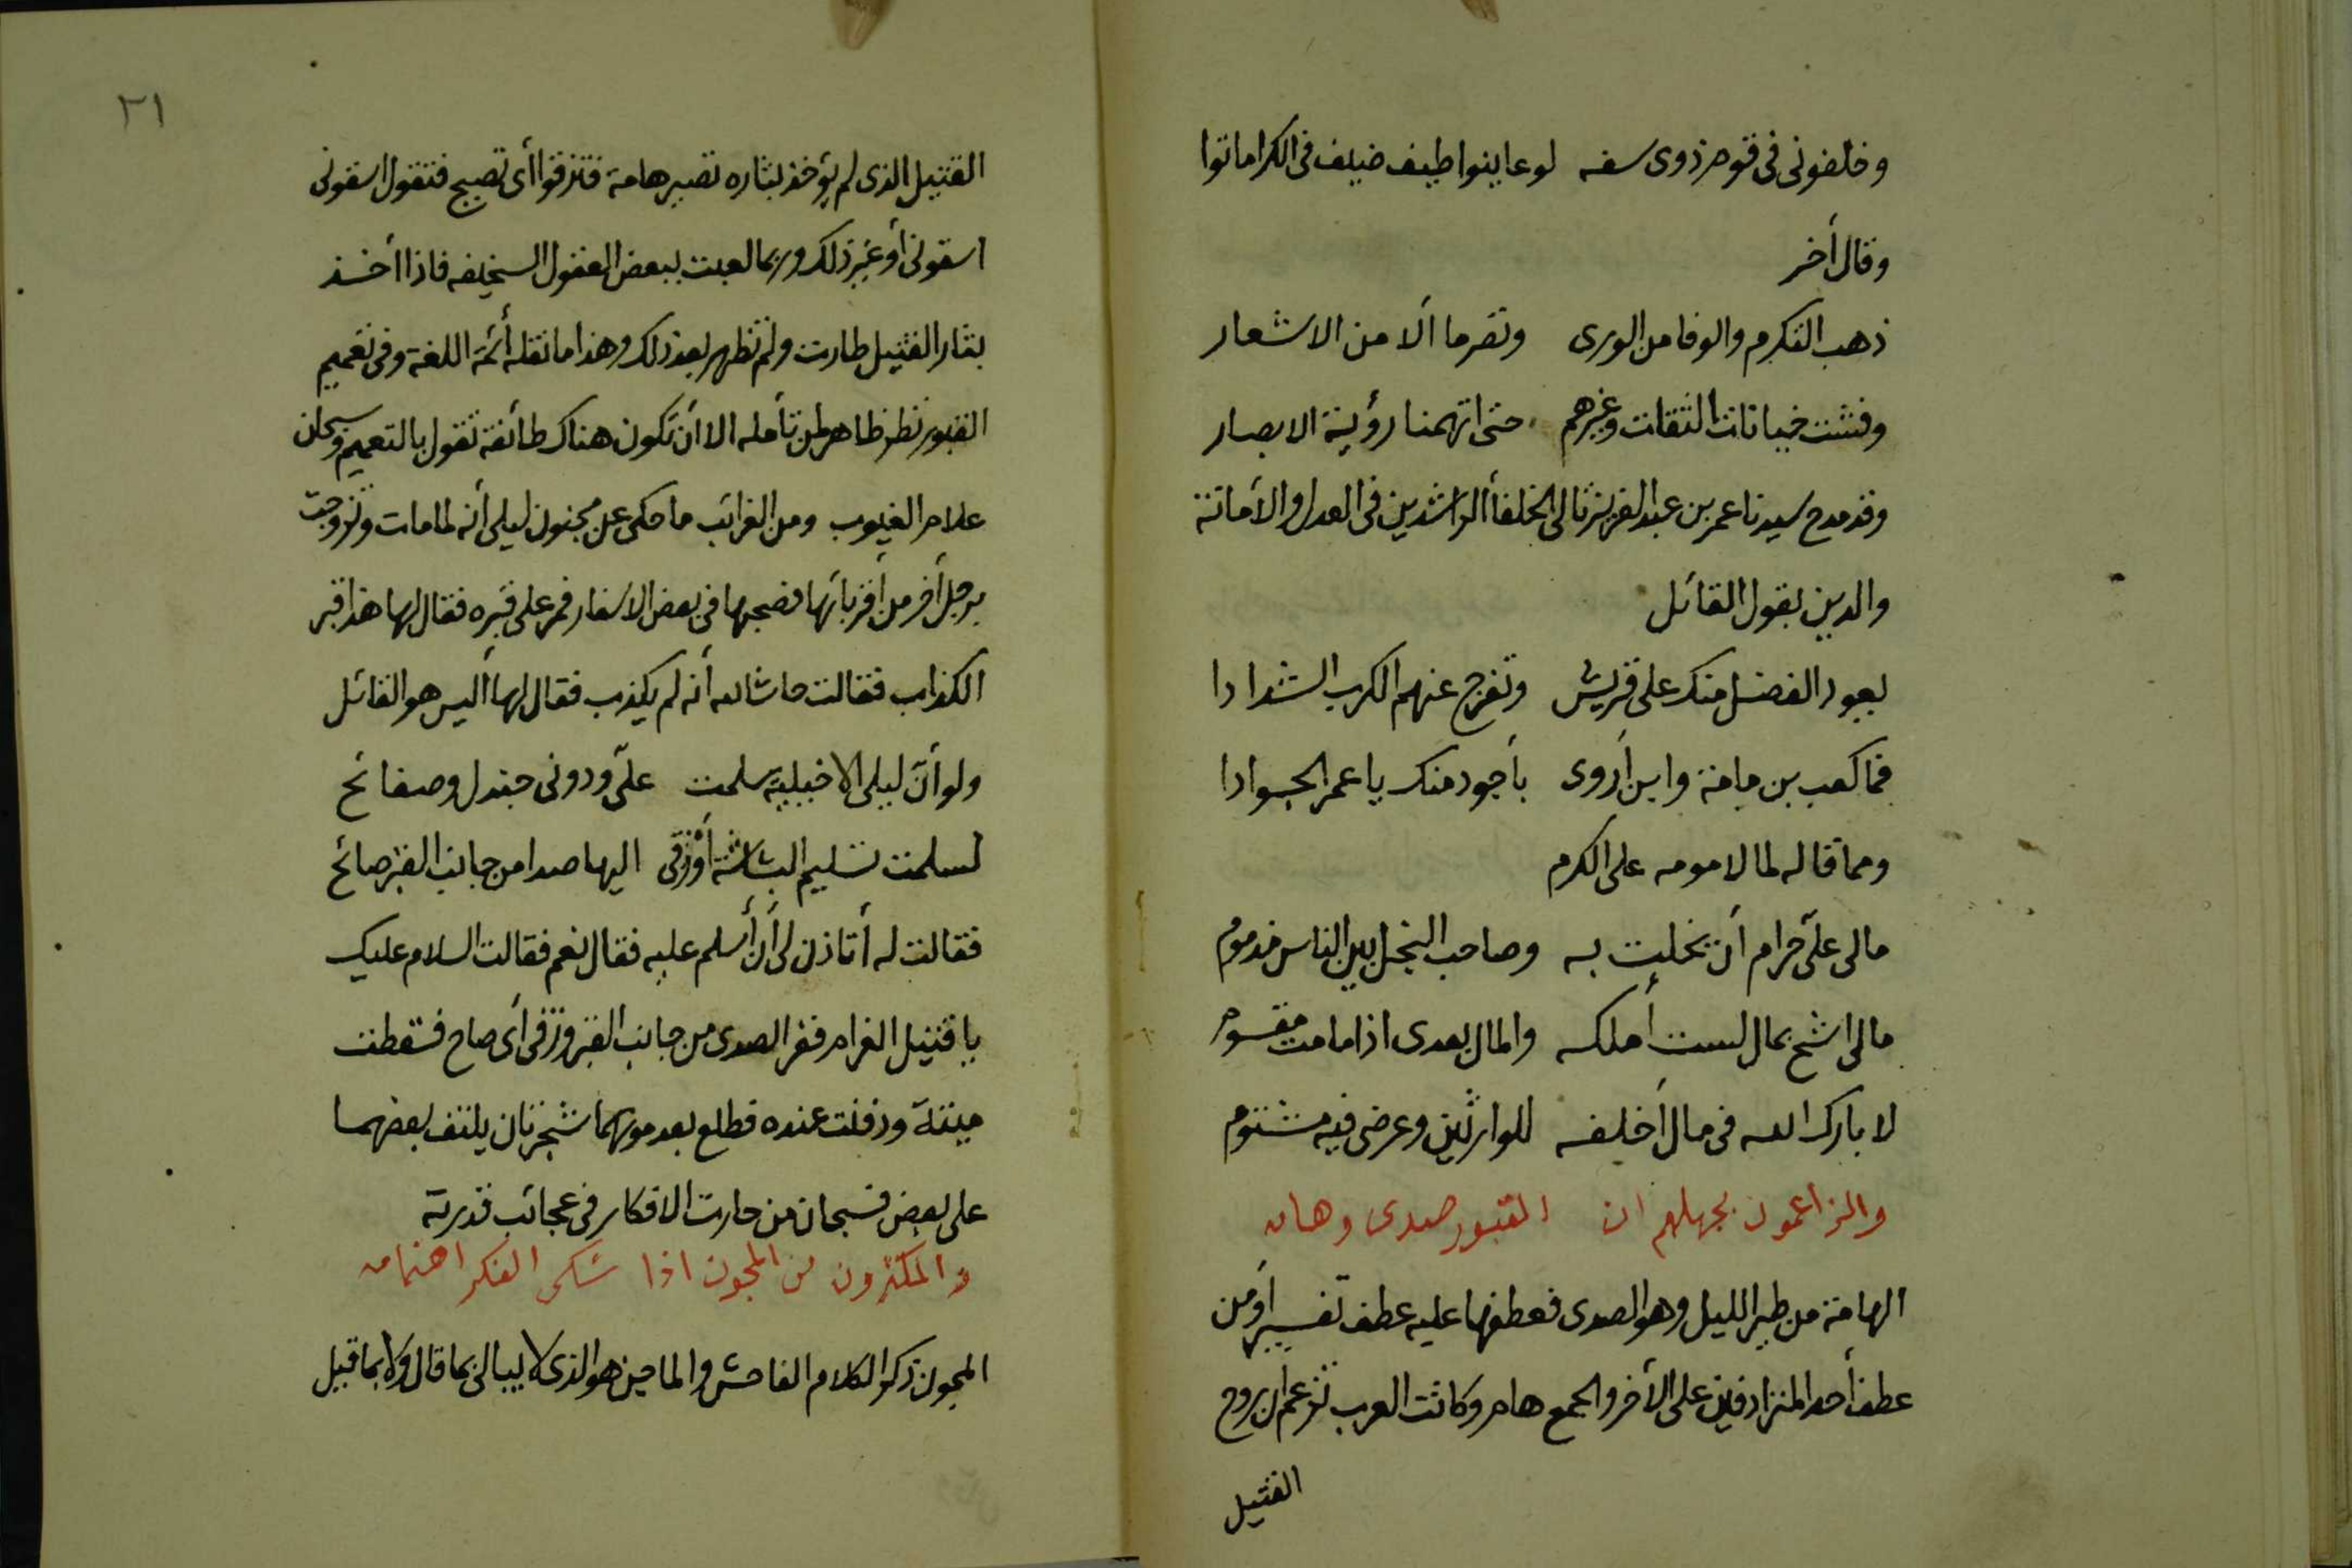 وخلفونى فى قوم ذوى سفه لو عاينوا طيف ضيف فى الكرا ماتوا
وقال أخر
ذهب التكرم والوفا من الورى وتصرما الا من الاشعار
وفشت خيانات الثقات وغيرهم حتى اتهمنا رؤية الابصار
وقد مدح سيدنا عمر بن عبد العزيز ثالى الخلفأ الراشدين فى العدل والأمانة
والدين بقول القائل
يعود الفضل منك على قريش وتفرج عنهم الكرب الشدادا
فما كعب بن مامة وابن أروى بأجود منك يا عمر الجوادا
ومما قاله لما لاموه على الكرم
مالى علىّ حرام أن بخلت به وصاحب البخل بين الناس مذموم
مالى اشح بمال لست أملكه والمال بعدى اذا مامت مقسوم
لا بارك الله فى مال أخلفه للوارثين وعرضى فيه مشتوم
والزاعمون بجهلهم ان القبور صدى وهامه
الهامة من طير الليل وهو الصدى فعطفها عليه عطف تفسير أو من
عطف أحد المترادفين على الأخر والجمع هام وكانت العرب تزعم ان روح
القتيل
٢١
القتيل الذى لم يؤخذ بثاره تصير هامة فتزقوا أى تصيح فتقول اسقونى
اسقونى أو غير ذلك وربما لعبت ببعض العقول السخيفه فاذا أخذ
بثار القتيل طارت ولم تظهر بعد ذلك وهذا ما نقله أئمة اللغة وفى تعميم
القبور نظر ظاهر لمن تأمله الا أن تكون هناك طائفة تقول بالتعميم وسبحان
علام الغيوب ومن الغرائب ما حكى عن مجنون ليلى أنه لما مات وتزوجت
برجل أخر من أقربائها فصحبها فى بعض الاسفار فمر على قبره فقال لها هذا قبر
الكذاب فقالت حاشا لله أنه لم يكذب فقال لها أليس هو القائل
ولو أنّ ليلى الاخيلية سلمت علىّ ودونى جندل وصفائح
لسلمت تسليم البشاشة أو زقى اليها صدا من جانب القبر صائح
فقالت له أتاذن لى أن أسلم عليه فقال نعم فقالت السلام عليك
يا قتيل الغرام ففر الصدى من جانب القبر وزقى أى صاح فسقطت
ميتة ودفنت عنده فطلع بعد موتهما شجرتان يلتف بعضهما
على بعض فسبحان من حارت الافكار فى عجائب قدرته
والمكثرون من المجون اذا شكى الفكر اهتمامه
المجون ذكر الكلام الفاحش والماجن هو الذى لا يبالى بما قال ولا بما قيل